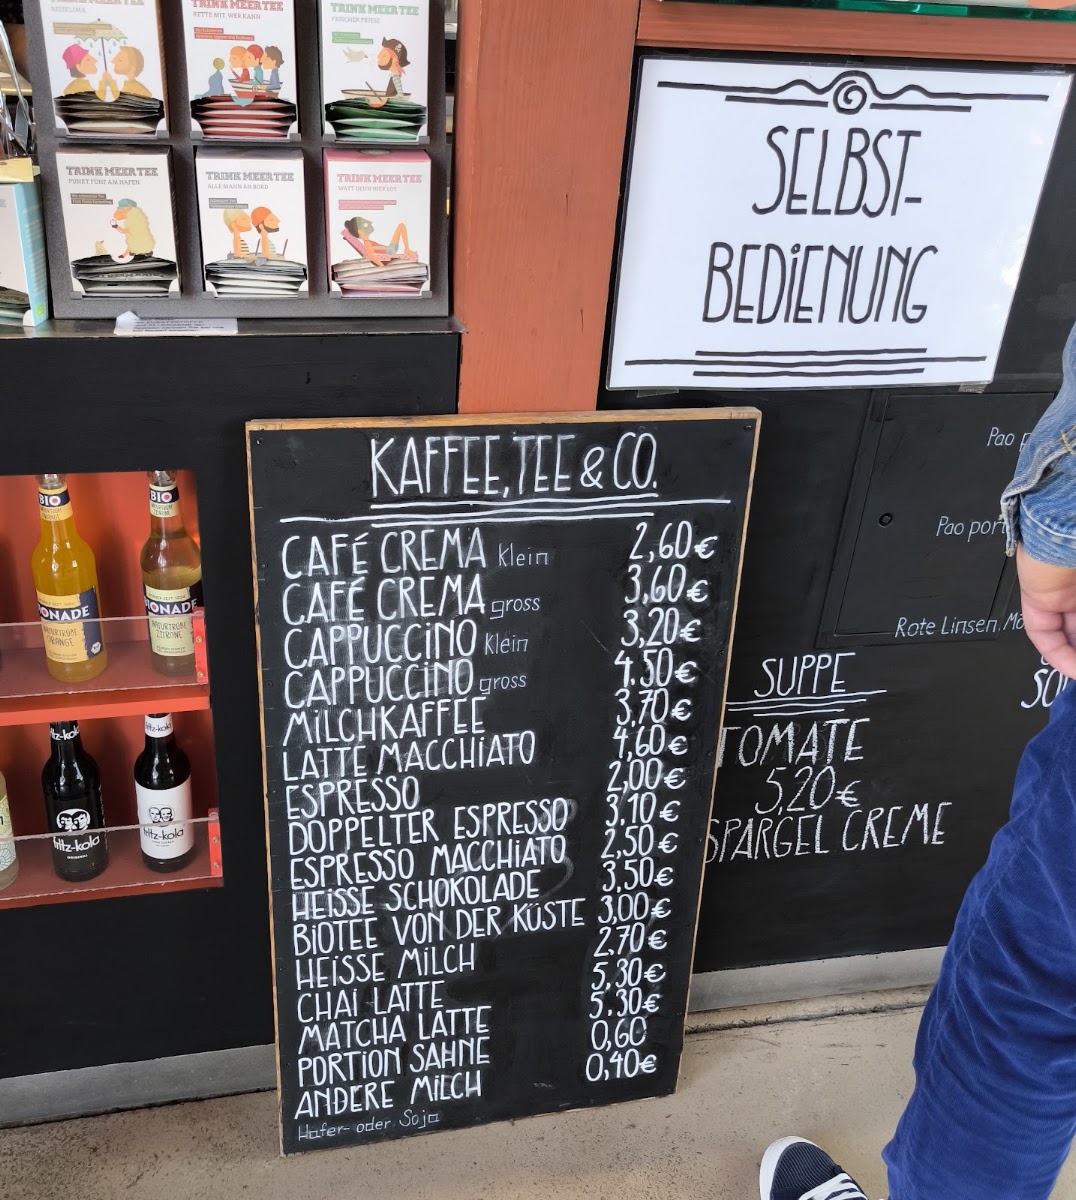 TRINK MEER TEE
REISELIMA
TRINK MEER TEE
RETTE MIT, WER KANN
TRINK MEER TEE
FRISCHER FRIESE
TRINK MEER TEE
PUNKT FÜNF AM HAFEN
TRINK MEER TEE
ALLE MANN AN BORD
TRINK MEER TEE
WATT DENN HIER LOS
SELBST-
BEDiENUNG
KAFFEE, TEE & CO.
CAFÉ CREMA Klein 2,60€
CAFÉ CREMA gross 3,60€
CAPPUCCiNO Klein 3,20€
CAPPUCCiNO gross 4,50€
MiLCHKAFFEE 3,70€
LATTE MACCHiATO 4,60€
ESPRESSO 2,00€
DOPPELTER ESPRESSO 3,10€
ESPRESSO MACCHiATO 2,50€
HEiSSE SCHOKOLADE 3,50€
BiOTEE VON DER KÜSTE 3,00€
HEiSSE MiLCH 2,70€
CHAi LATTE 5,30€
MATCHA LATTE 5,30€
PORTiON SAHNE 0,60€
ANDERE MiLCH 0,40€
Hafer- oder Soja
Pao
Pao
Rote Linsen,
SUPPE
TOMATE
5,20€
SPARGEL CREME
BIO
NATURTRÜBE
ORANGE
BIO
NATURTRÜBE
ZITRONE
fritz-kola
fritz-kola
fritz-kola
fritz-kola